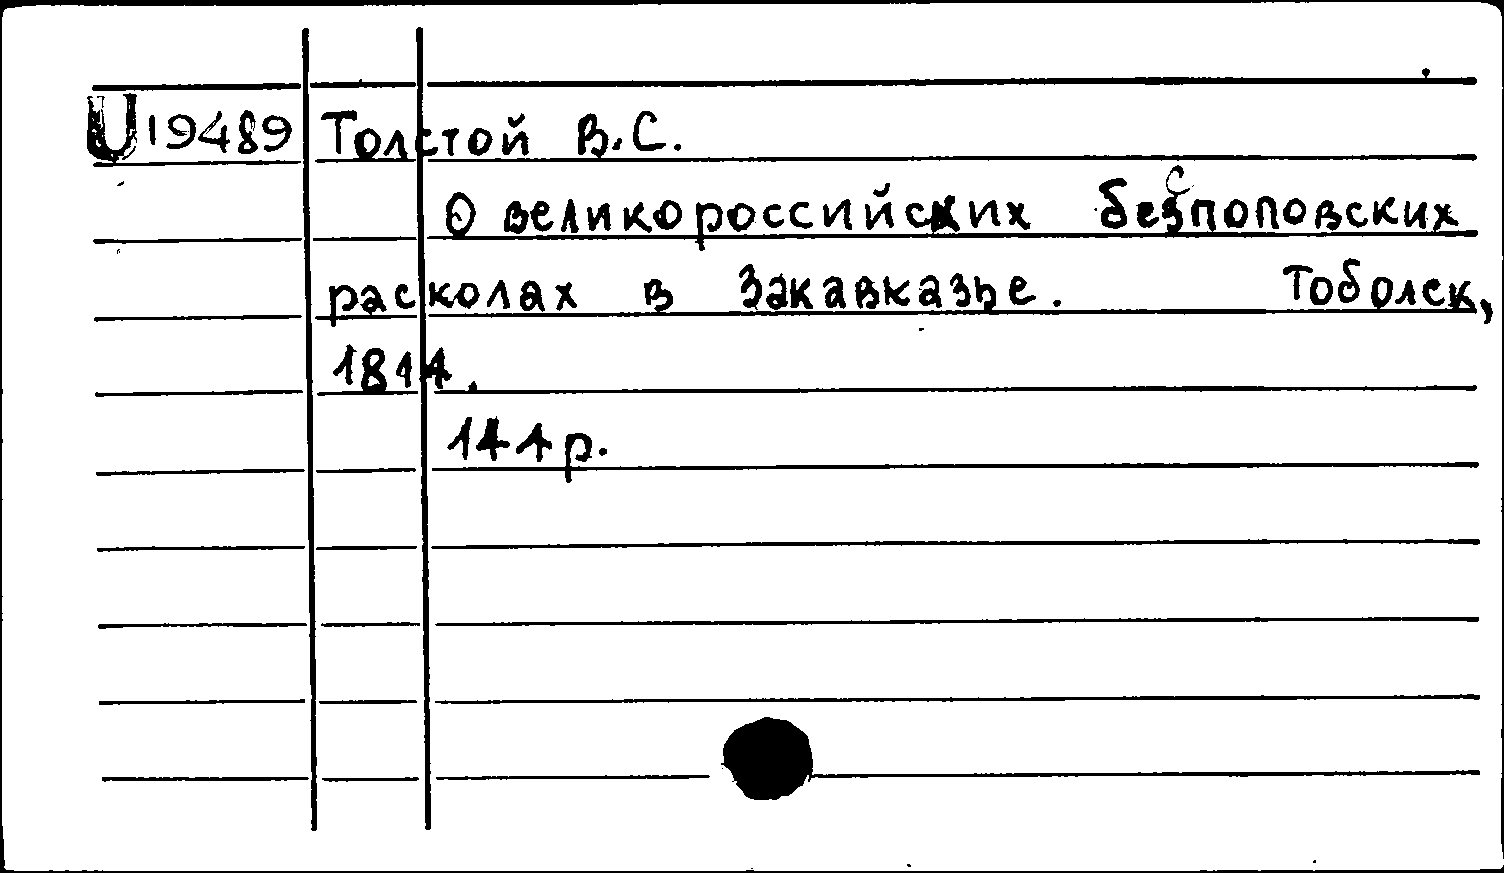 U 19489 Толстой В.С.
О великороссийских безпоповских
расколах в Закавказье. Тоболск,
1814.
144 р.